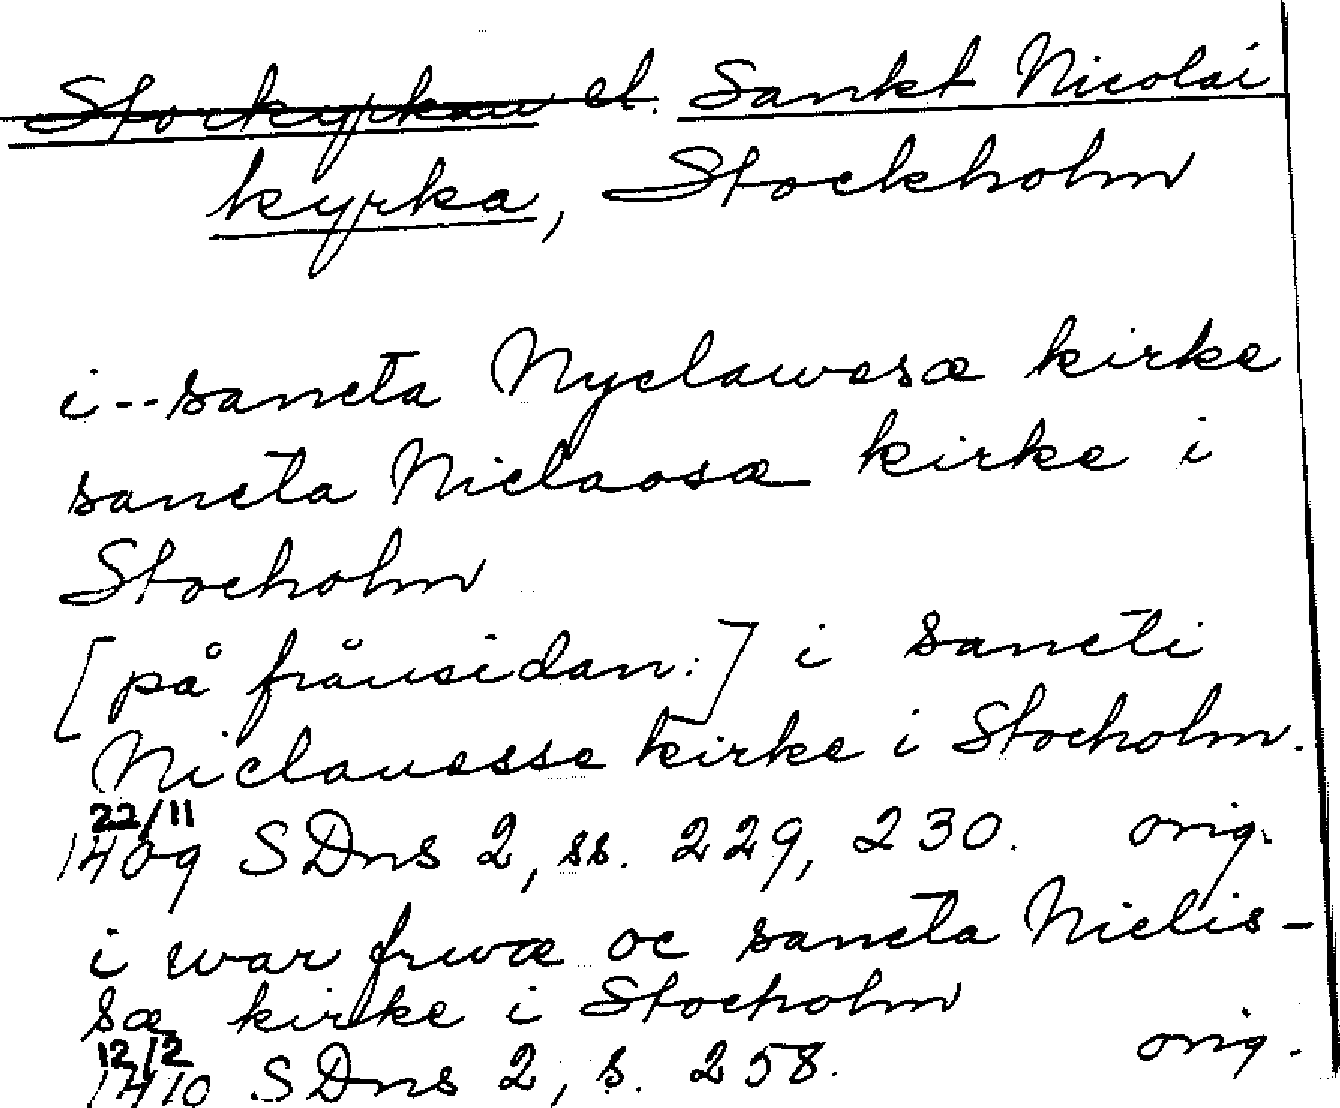 Storkyrkan el. Sankt Nicolai
kyrka, Stockholm
i -- sancta Nyclawesæ kirke
sancta Niclaosæ kirke i
Stocholm
[på frånsidan:] i sancti
Niclauesse kirke i Stocholm.
22/11
1409 SDns 2, ss. 229, 230. orig.
i war frwæ oc sancta Niclis-
sæ kirke i Stocholm
12/2
1410 SDns 2, s. 258. orig.